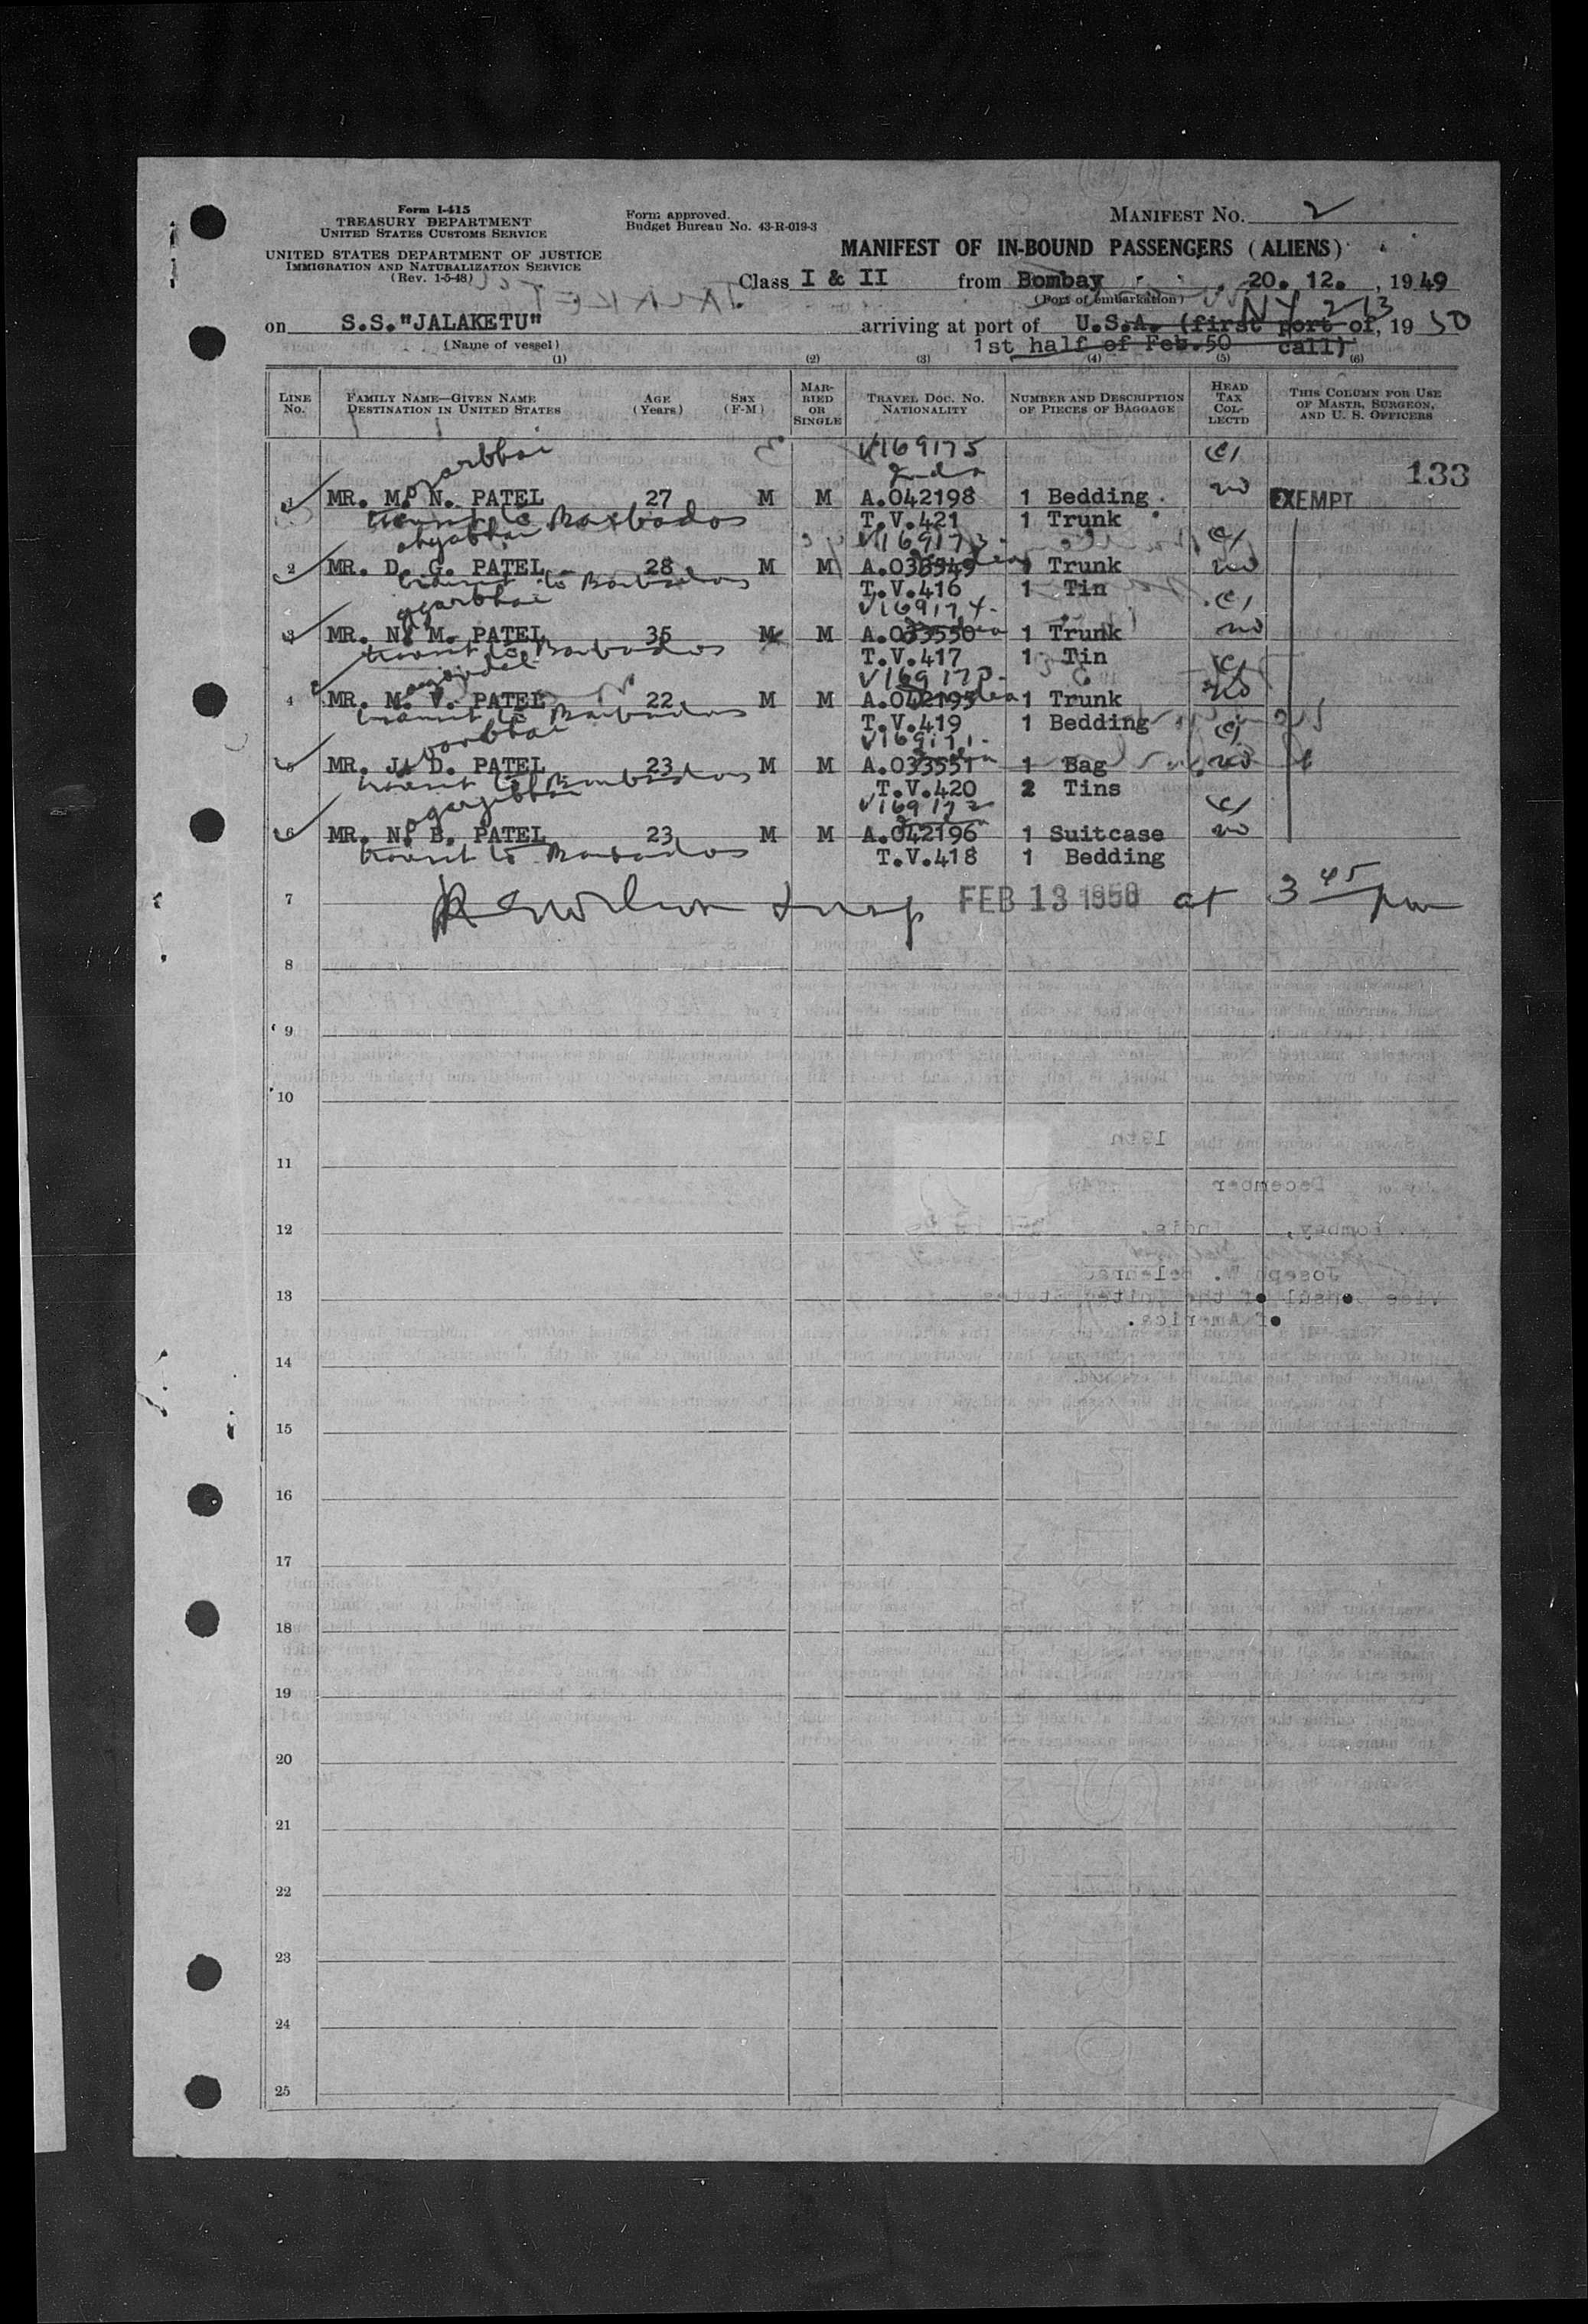 Form I-415
TREASURY DEPARTMENT
UNITED STATES CUSTOMS SERVICE
UNITED STATES DEPARTMENT OF JUSTICE
IMMIGRATION AND NATURALIZATION SERVICE
(Rev. 1-5-48)
Form approved.
Budget Bureau No. 43-R-019-3
MANIFEST NO. 2
MANIFEST OF IN-BOUND PASSENGERS (ALIENS)
Class I & II from Bombay, 20. 12., 1949
(Port of embarkation)
NY 2-13
on S.S."JALAKETU" arriving at port of U.S.A. (first port of, 19 50
(Name of vessel) 1st half of Feb.50 call)
(1) (2) (3) (4) (5) (6)
LINE No. FAMILY NAME—GIVEN NAME DESTINATION IN UNITED STATES AGE (Years) SEX (F-M) MARRIED OR SINGLE TRAVEL DOC. NO. NATIONALITY NUMBER AND DESCRIPTION OF PIECES OF BAGGAGE HEAD TAX COLLECTD THIS COLUMN FOR USE OF MASTR, SURGEON, AND U. S. OFFICERS
V169175
India
133
1 MR. M. N. PATEL 27 M M A.042198 1 Bedding no EXEMPT
transit to Barbados T.V.421 1 Trunk
V169173
2 MR. D. G. PATEL 28 M M A.033549 1 Trunk no
transit to Barbados T.V.416 1 Tin
V169174
3 MR. N. M. PATEL 35 M M A.033550 1 Trunk no
transit to Barbados T.V.417 1 Tin
4 MR. M. V. PATEL 22 M M A.042195 1 Trunk no
transit to Barbados T.V.419 1 Bedding
V169171
5 MR. J. D. PATEL 23 M M A.033551 1 Bag no
transit to Barbados T.V.420 2 Tins
V169172
6 MR. N. B. PATEL 23 M M A.042196 1 Suitcase no
transit to Barbados T.V.418 1 Bedding
7 Insp FEB 13 1950 at 3 45 pm
8
9
10
11
12
13
14
15
16
17
18
19
20
21
22
23
24
25